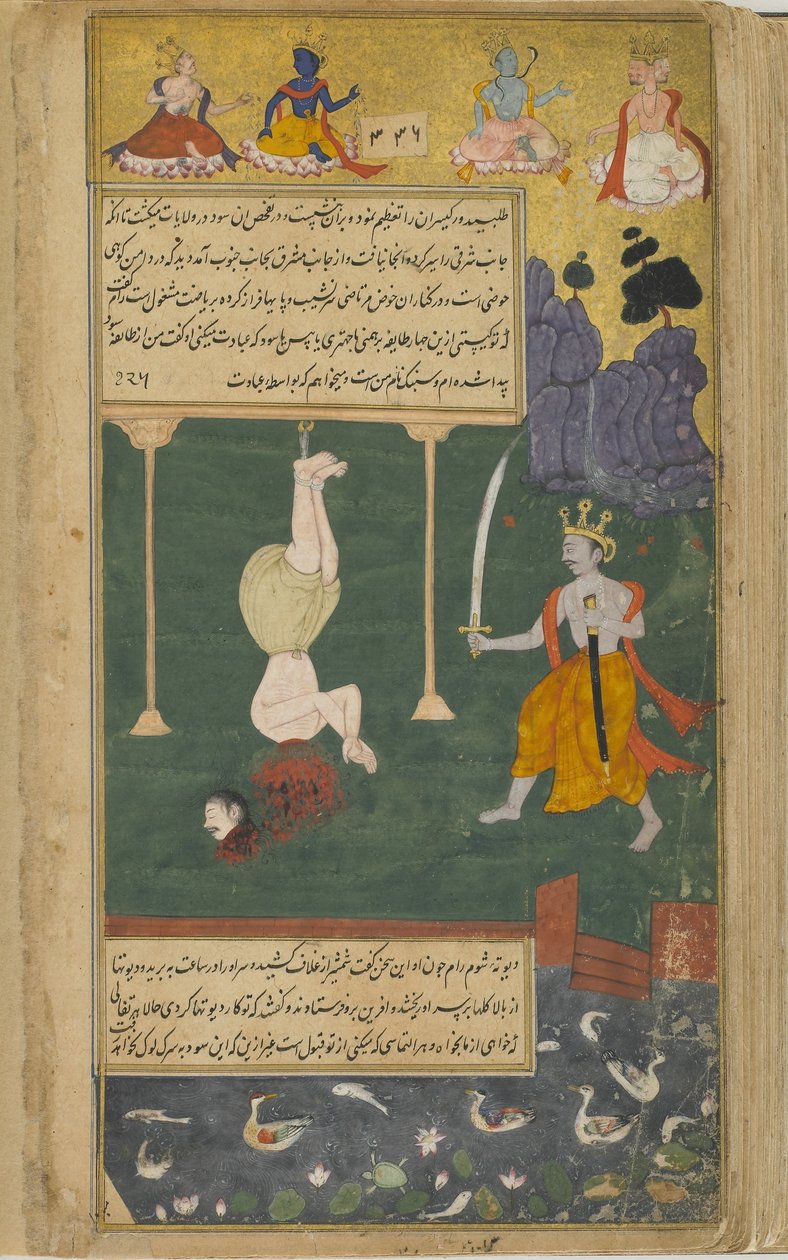 ۳۳۶
طلبیده ور کیسران را تعظیم نمود و بران بنشست و در تفحص ان سود در ولایات میکشت تا انکه
جانب شرقی را سیر کرده و انجا نیافت و از جانب مشرق بجانب جنوب آمد دید که در دامن کوهی
حوضی است و در کنار ان حوض مرتاضی سر نشیب و پا بها فراز کرده بریاضت مشغول است رام گفت
که تو کیستی ازین چهار طایفه برهمنی یا چهتری یا بیس یا سود که عبادت میکنی او گفت من از طایفه سود
پیدا شده ام و سنبک نام من است و میخواهم که بواسطهٔ عبادت
۲۲۵
دیوته شوم رام چون او این سخن گفت شمشیر از غلاف کشید و سر او را در ساعت به برید و دیوتها
از بالا کلها بر سر او ریختند و افرین برو فرستادند و گفتند که تو کار دیوتها کردی حالا هر
که خواهی از ما بخواه و هر التماسی که میکنی از تو قبول است غیر ازین که این سود به سرک لوک نخواهد رفت